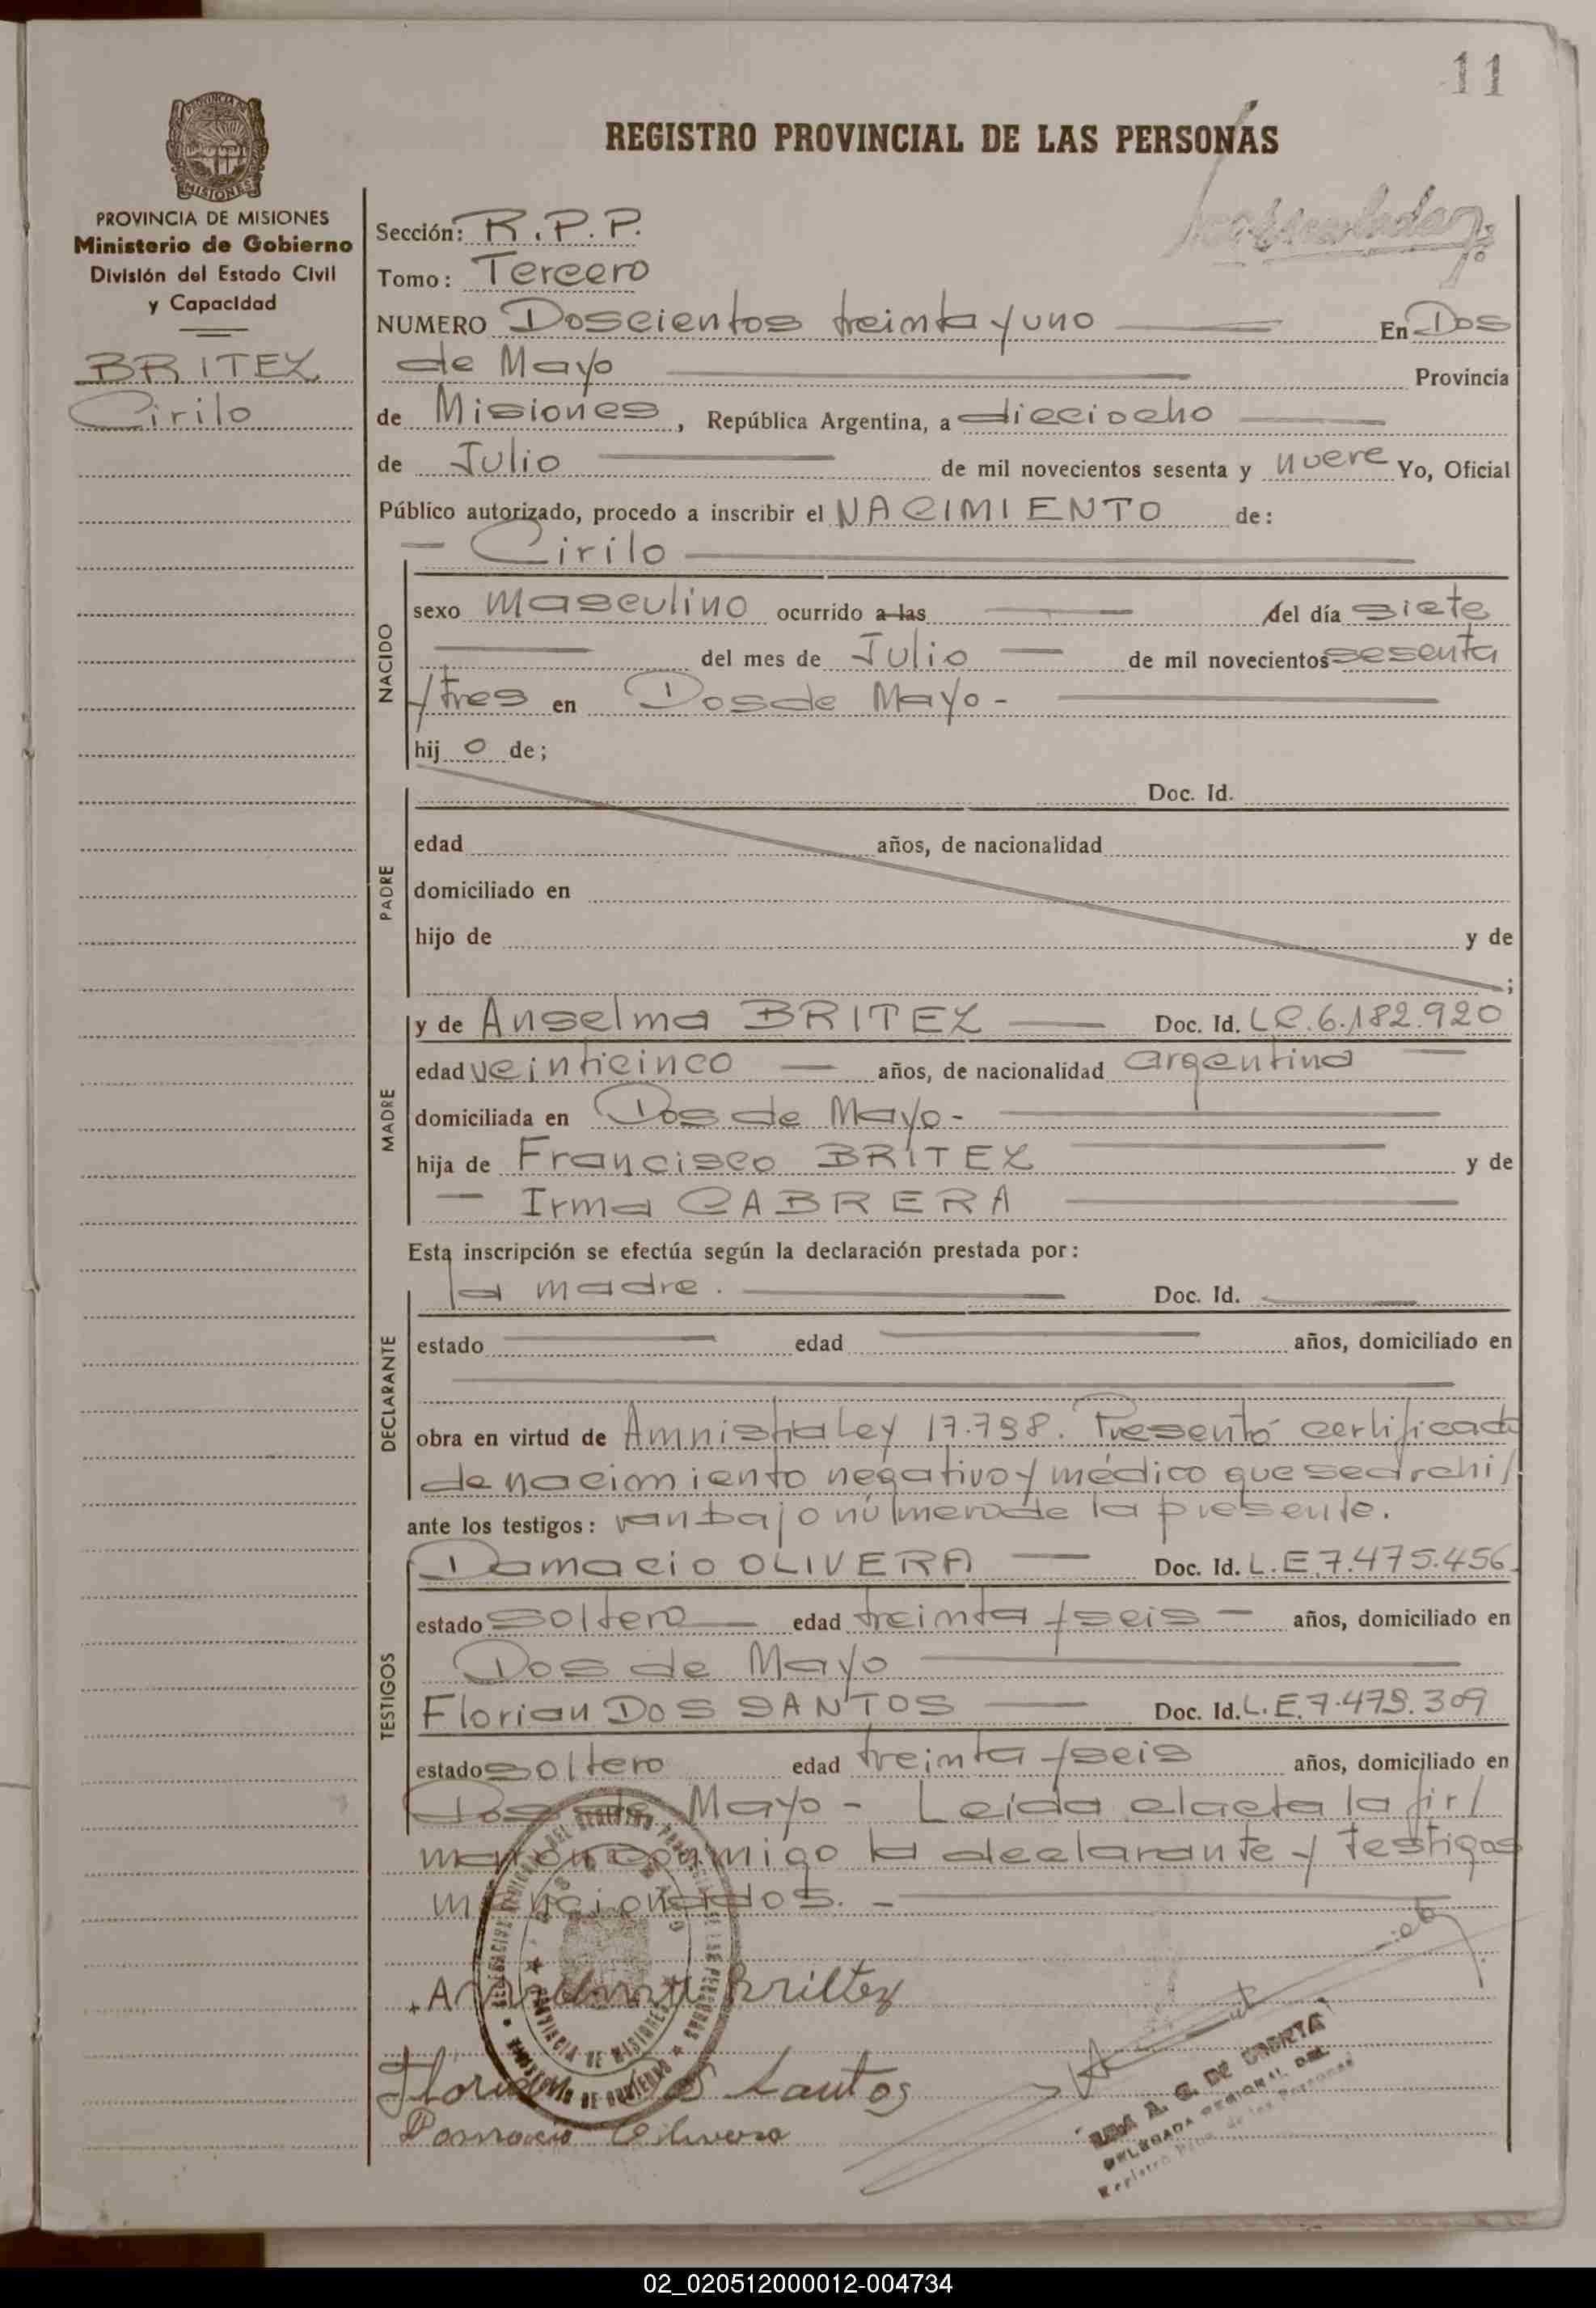 11
REGISTRO PROVINCIAL DE LAS PERSONAS
PROVINCIA DE MISIONES
Ministerio de Gobierno
División del Estado Civil
y Capacidad
BRITEZ
Cirilo
Sección: R.P.P.
Tomo: Tercero
NUMERO Doscientos treinta y uno En Dos
de Mayo Provincia
de Misiones, República Argentina, a dieciocho
de Julio de mil novecientos sesenta y nueve Yo, Oficial
Público autorizado, procedo a inscribir el NACIMIENTO de:
Cirilo
NACIDO
sexo masculino ocurrido a las del día siete
del mes de Julio de mil novecientos sesenta
y tres en Dos de Mayo-
hijo de;
PADRE
Doc. Id.
edad años, de nacionalidad
domiciliado en
hijo de y de
;
MADRE
y de Anselma BRITEZ Doc. Id. LC.6.182.920
edad veinticinco años, de nacionalidad argentina
domiciliada en Dos de Mayo-
hija de Francisco BRITEZ y de
Irma CABRERA
Esta inscripción se efectúa según la declaración prestada por:
DECLARANTE
la madre. Doc. Id.
estado edad años, domiciliado en
obra en virtud de Amnistia Ley 17.798. Presentó certificado
de nacimiento negativo y médico que se archi/
ante los testigos: van bajo número de la presente.
TESTIGOS
Damacio OLIVERA Doc. Id. L.E.7.475.456
estado soltero edad treinta y seis - años, domiciliado en
Dos de Mayo
Florian DOS SANTOS Doc. Id. L.E.7.479.309
estado soltero edad treinta y seis años, domiciliado en
Dos de Mayo - Leída el acta la fir/
man conmigo la declarante y testigos
mencionados. -
Britez
Santos
Damacio Olivera
DELEGADA REGIONAL DEL
02_020512000012-004734